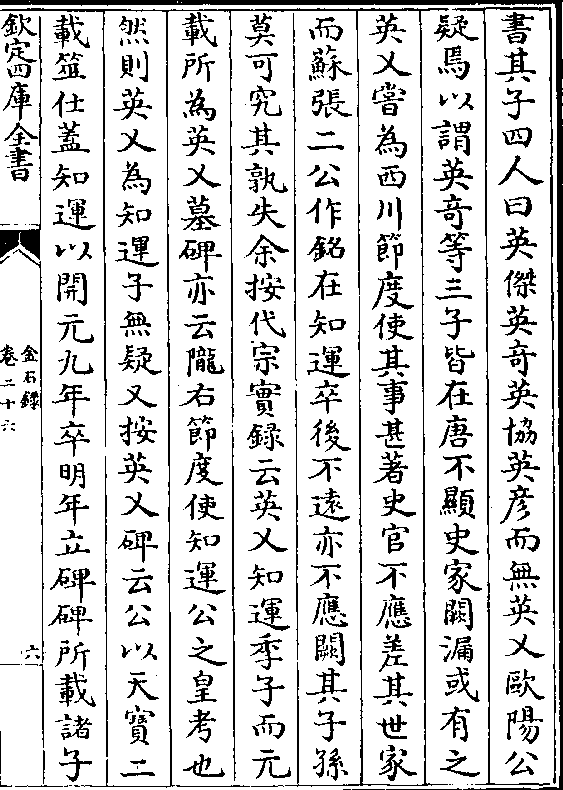 書其子四人曰英傑英奇英協英彦而無英乂歐陽公
疑焉以謂英奇等三子皆在唐不顯史家闕漏或有之
英乂嘗為西川節度使其事甚著史官不應差其世家
而蘇張二公作銘在知運卒後不遠亦不應闕其子孫
莫可究其孰失余按代宗實錄云英乂知運季子而元
載所為英乂墓碑亦云隴右節度使知運公之皇考也
然則英乂為知運子無疑又按英乂碑云公以天寶二
載筮仕蓋知運以開元九年卒明年立碑碑所載諸子
欽定四庫全書
金石錄
卷二十六
六